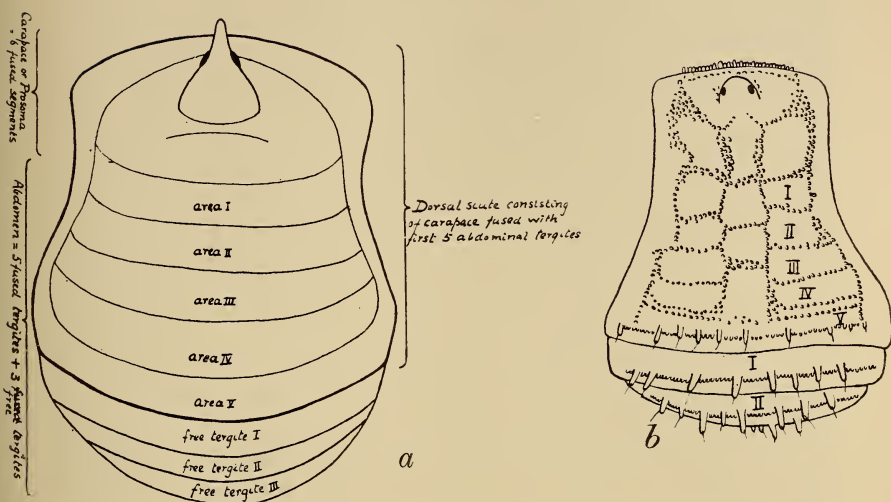 Carapace or Prosoma
= 6 fused segments
Abdomen = 5 fused tergites + 3 fused tergites
free
area I
area II
area III
area IV
area V
free tergite I
free tergite II
free tergite III
Dorsal scute consisting
of carapace fused with
first 5 abdominal tergites
a
I
II
III
IV
V
I
II
b